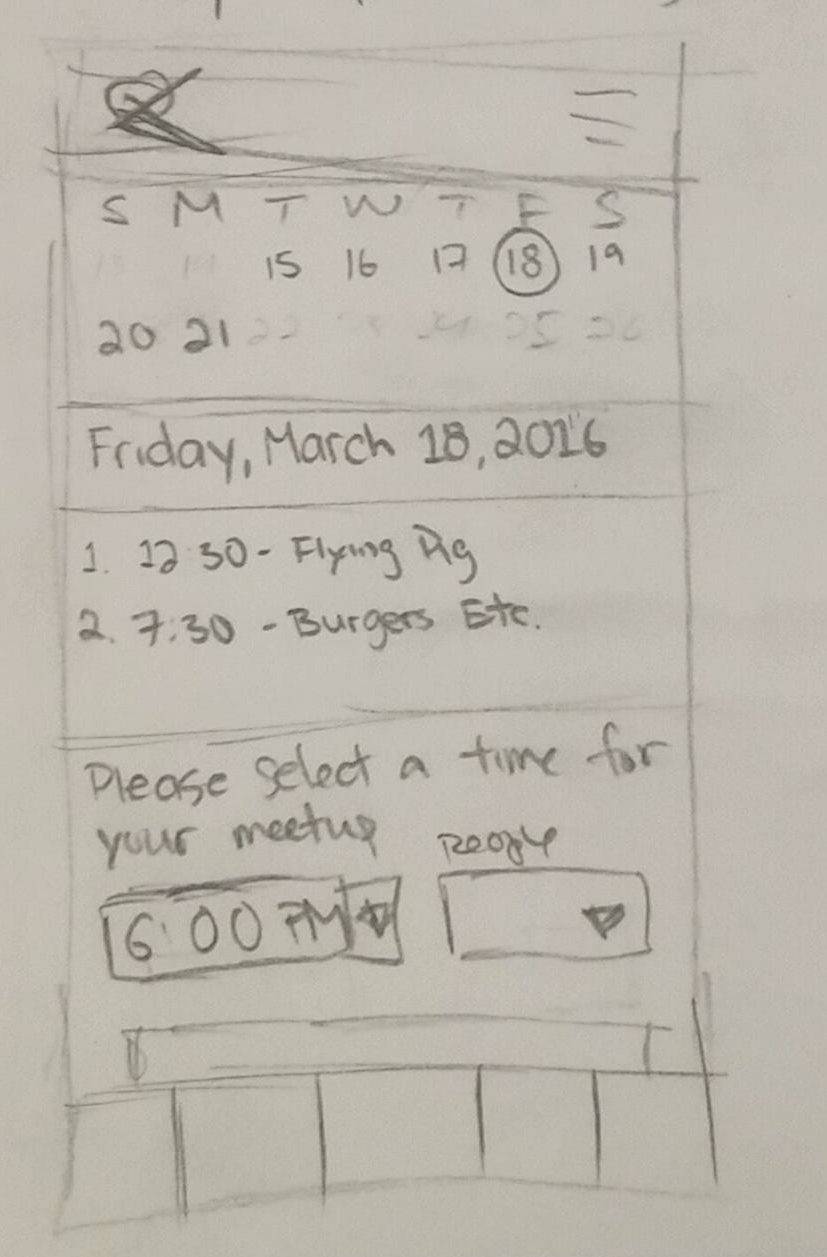 S M T W T F S
15 16 17 18 19
20 21 22 24 25 26
Friday, March 18, 2016
1. 12:30 - Flying Pig
2. 7:30 - Burgers Etc.
Please select a time for
your meetup
People
6:00 PM